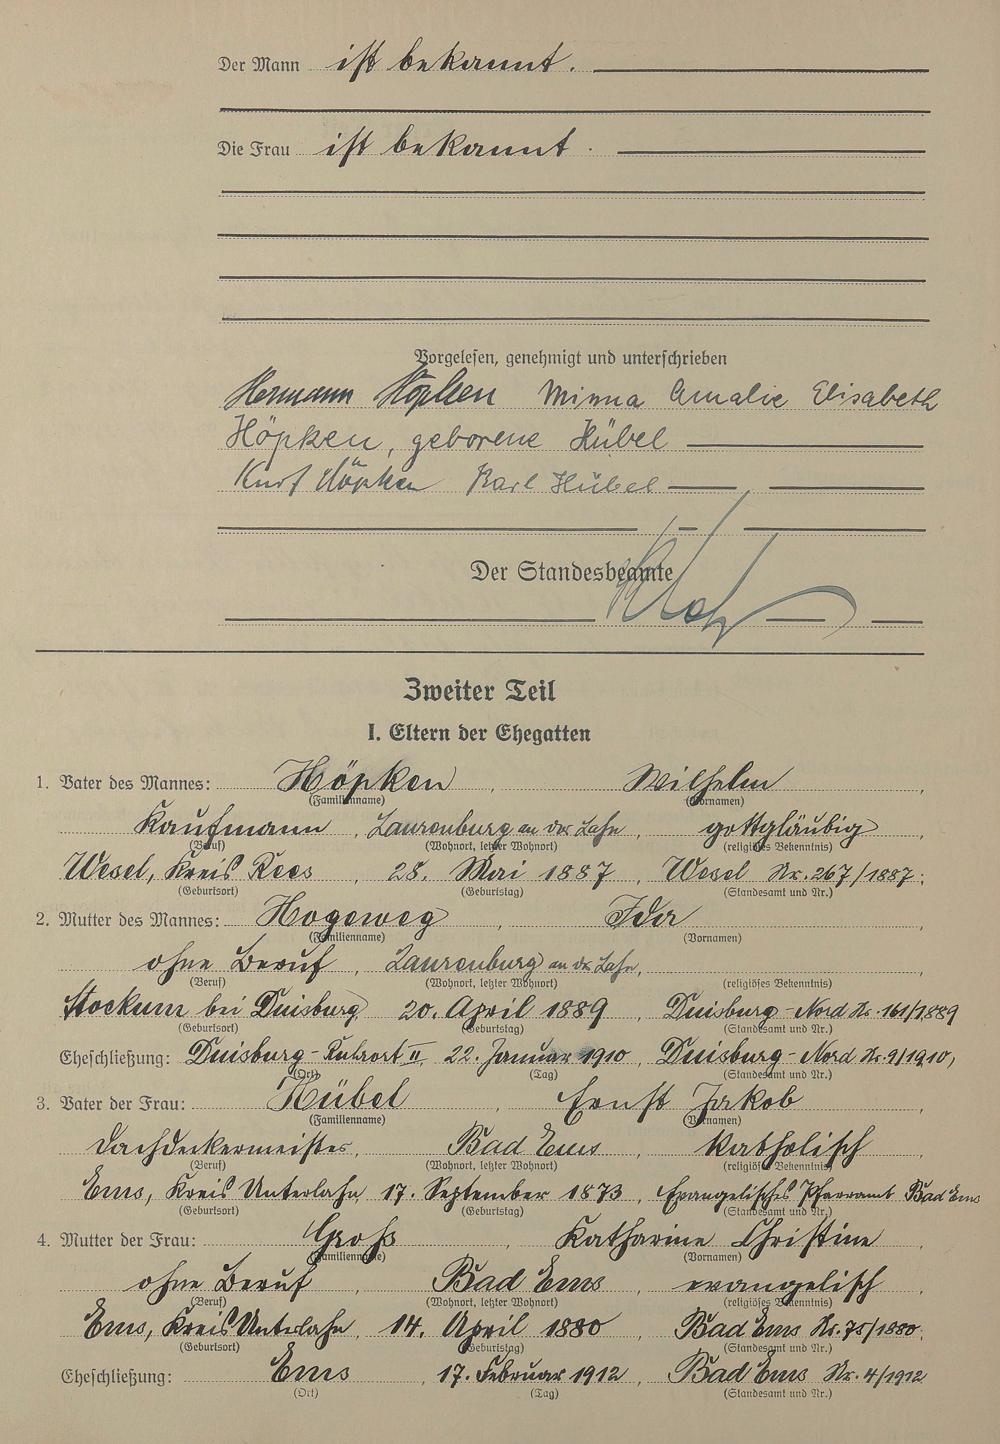 Der Mann ist bekannt.
Die Frau ist bekannt.
Vorgelesen, genehmigt und unterschrieben
Hermann Höpken Minna Amalie Elisabeth
Höpken, geborene Hübel
Kurt Höpken Karl Hübel
Der Standesbeamte
Zweiter Teil
I. Eltern der Ehegatten
1. Vater des Mannes: Höpken, Wilhelm,
(Familienname) (Vornamen)
Kaufmann, Laurenburg an der Lahn, gottgläubig
(Beruf) (Wohnort, letzter Wohnort) (religiöses Bekenntnis)
Wesel, Kreis Rees, 28. Mai 1887, Wesel Nr. 267/1887;
(Geburtsort) (Geburtstag) (Standesamt und Nr.)
2. Mutter des Mannes: Hogeweg, Ida,
(Familienname) (Vornamen)
ohne Beruf, Laurenburg an der Lahn,
(Beruf) (Wohnort, letzter Wohnort) (religiöses Bekenntnis)
Stockum bei Duisburg, 20. April 1889, Duisburg-Nord Nr. 161/1889
(Geburtsort) (Geburtstag) (Standesamt und Nr.)
Eheschließung: Duisburg-Ruhrort II, 22. Januar 1910, Duisburg-Nord Nr. 9/1910,
(Ort) (Tag) (Standesamt und Nr.)
3. Vater der Frau: Hübel, Ernst Jakob,
(Familienname) (Vornamen)
Dachdeckermeister, Bad Ems, katholisch
(Beruf) (Wohnort, letzter Wohnort) (religiöses Bekenntnis)
Ems, Kreis Unterlahn, 17. September 1873, Evangelisches Pfarramt Bad Ems
(Geburtsort) (Geburtstag) (Standesamt und Nr.)
4. Mutter der Frau: Groß, Katharine Christine,
(Familienname) (Vornamen)
ohne Beruf, Bad Ems, evangelisch
(Beruf) (Wohnort, letzter Wohnort) (religiöses Bekenntnis)
Ems, Kreis Unterlahn, 14. April 1880, Bad Ems Nr. 75/1880;
(Geburtsort) (Geburtstag) (Standesamt und Nr.)
Eheschließung: Ems, 17. Februar 1912, Bad Ems Nr. 4/1912
(Ort) (Tag) (Standesamt und Nr.)